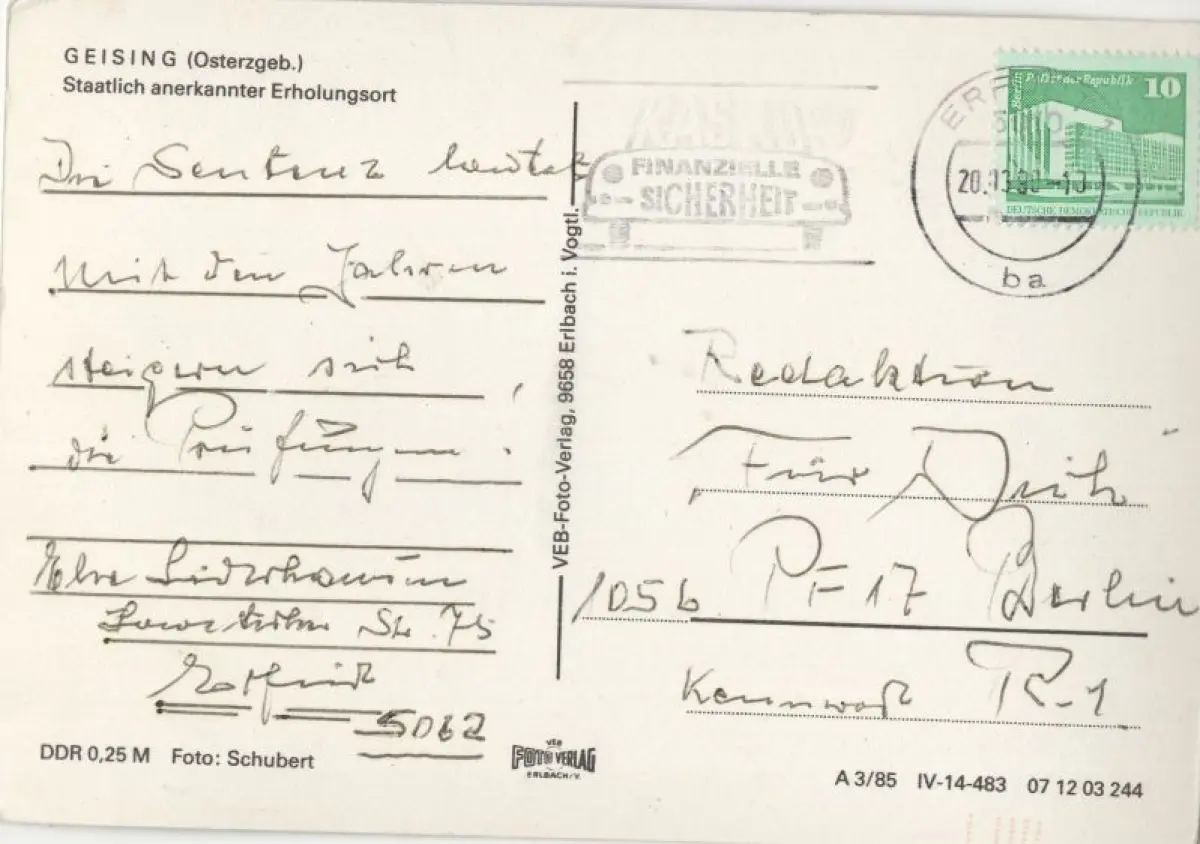 GEISING (Osterzgeb.)
Staatlich anerkannter Erholungsort
Die Sentenz lautet
Mit den Jahren
steigern sich
die Prüfungen.
Str. 75
5062
DDR 0,25 M Foto: Schubert
VEB-Foto-Verlag, 9658 Erlbach i. Vogtl.
VEB
FOTO VERLAG
ERLBACH/V.
FINANZIELLE
SICHERHEIT
ERF
ba
Berlin Palast der Republik 10
DEUTSCHE DEMOKRATISCHE REPUBLIK
Redaktion
Für Dich
1056 PF 17 Berlin
Kennwort R-1
A 3/85 IV-14-483 07 12 03 244